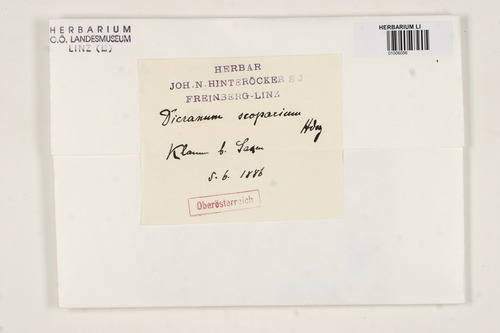 HERBARIUM
O.Ö. LANDESMUSEUM
LINZ (LI)
HERBARIUM LI
HERBAR
JOH. N. HINTERÖCKER S J
FREINBERG-LINZ
Dicranum scoparium
Hdwg
Klamm b. Saxen
5. 6. 1886
Oberösterreich